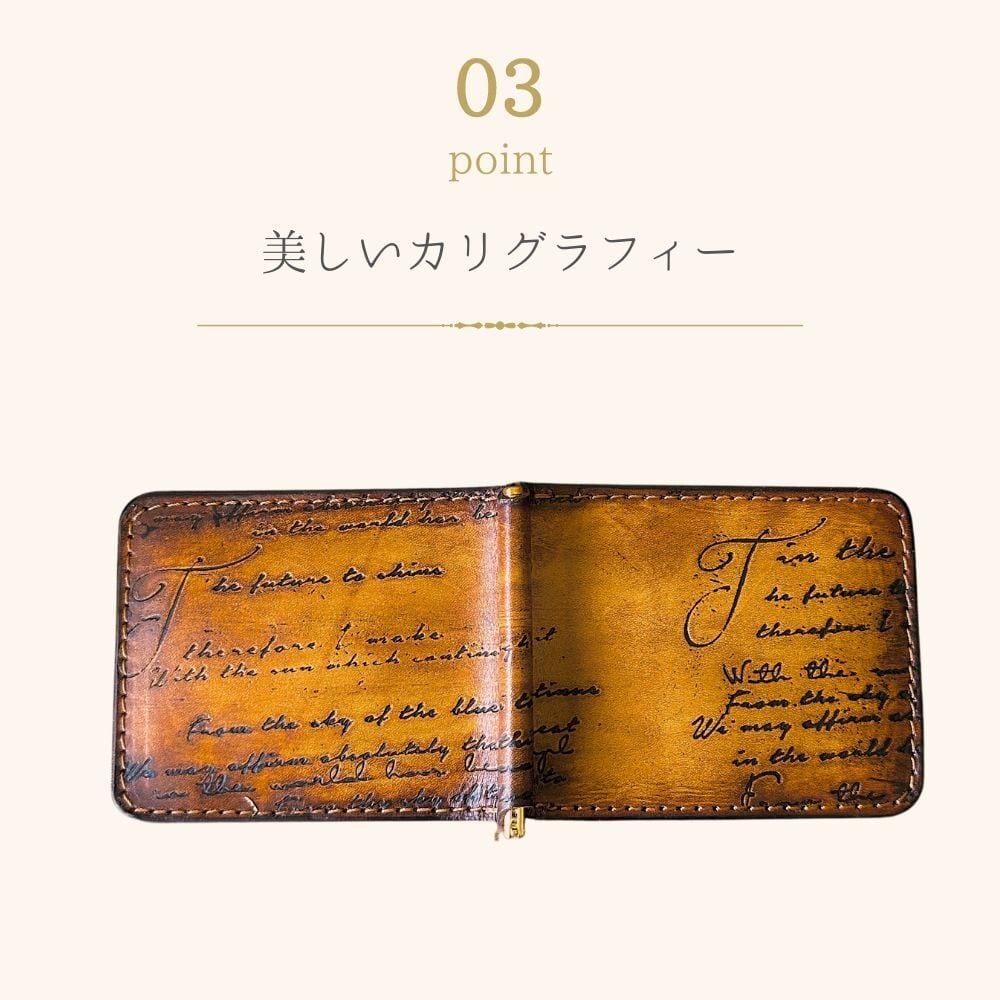 03
point
美しいカリグラフィー
in the world has be
The future to shine
therefore, I make
With the sun which
From the sky of the blue
We may affirm absolutely that
T in the
he future
therefore I
With the
From the sky
We may affirm
in the world
From the